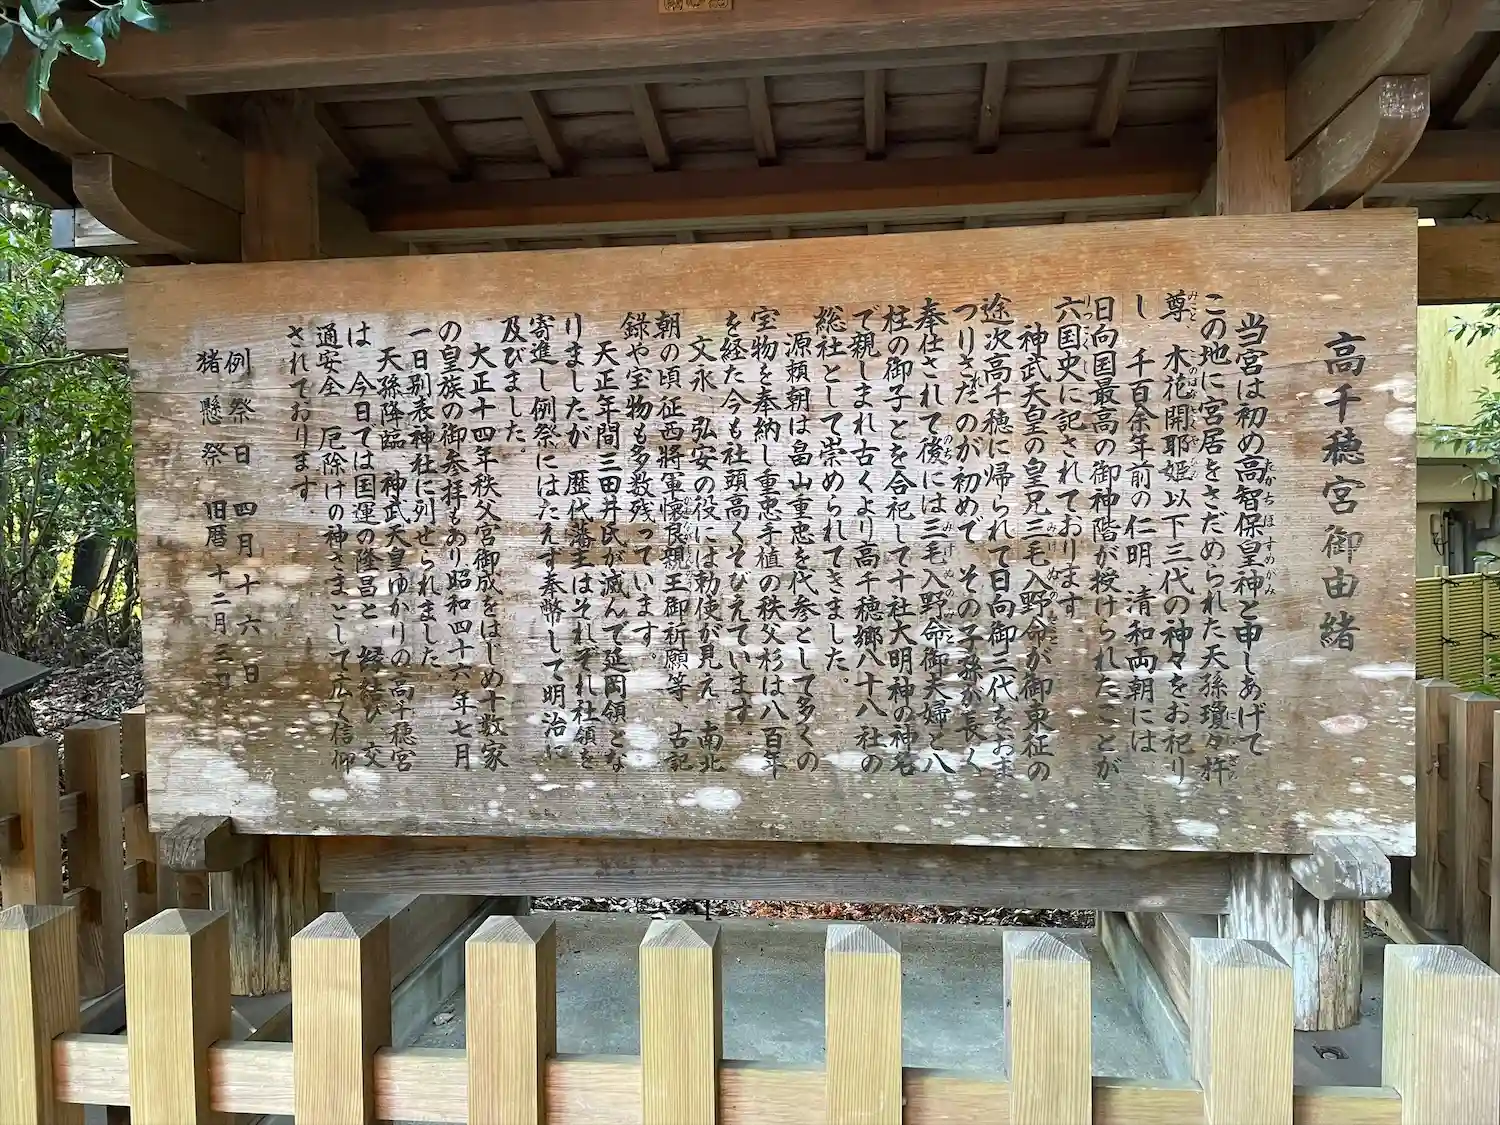 高千穂宮御由緒
当宮は初め高智保皇神と申しあげて
この地に宮居をさだめられた天孫瓊々杵
尊 木花開耶姫以下三代の神々をお祀り
し 千百余年前の仁明 清和両朝には
日向国最高の御神階が授けられたことが
六国史に記されております
神武天皇の皇兄三毛入野命が御東征の
途次高千穂に帰られて日向御三代をおま
つりされたのが初めで その子孫が長く
奉仕されて後には三毛入野命御夫婦と八
柱の御子とを合祀して十社大明神の神名
で親しまれ古くより高千穂郷八十八社の
総社として崇められてきました。
源頼朝は畠山重忠を代参として多くの
宝物を奉納し重忠手植の秩父杉は八百年
を経た今も社頭高くそびえています
文永 弘安の役には勅使が見え 南北
朝の頃征西将軍懐良親王御祈願等 古記
録や宝物も多数残っています。
天正年間三田井氏が滅んで延岡領とな
りましたが 歴代藩主はそれぞれ社領を
寄進し例祭にはたえず奉幣して明治に
及びました。
大正十四年秩父宮御成をはじめ十数家
の皇族の御参拝もあり昭和四十六年七月
一日別表神社に列せられました
天孫降臨 神武天皇ゆかりの高千穂宮
は 今日では国運の隆昌と 縁結び 交
通安全 厄除けの神さまとして広く信仰
されております
例祭日 四月十六日
猪懸祭 旧暦十二月三日